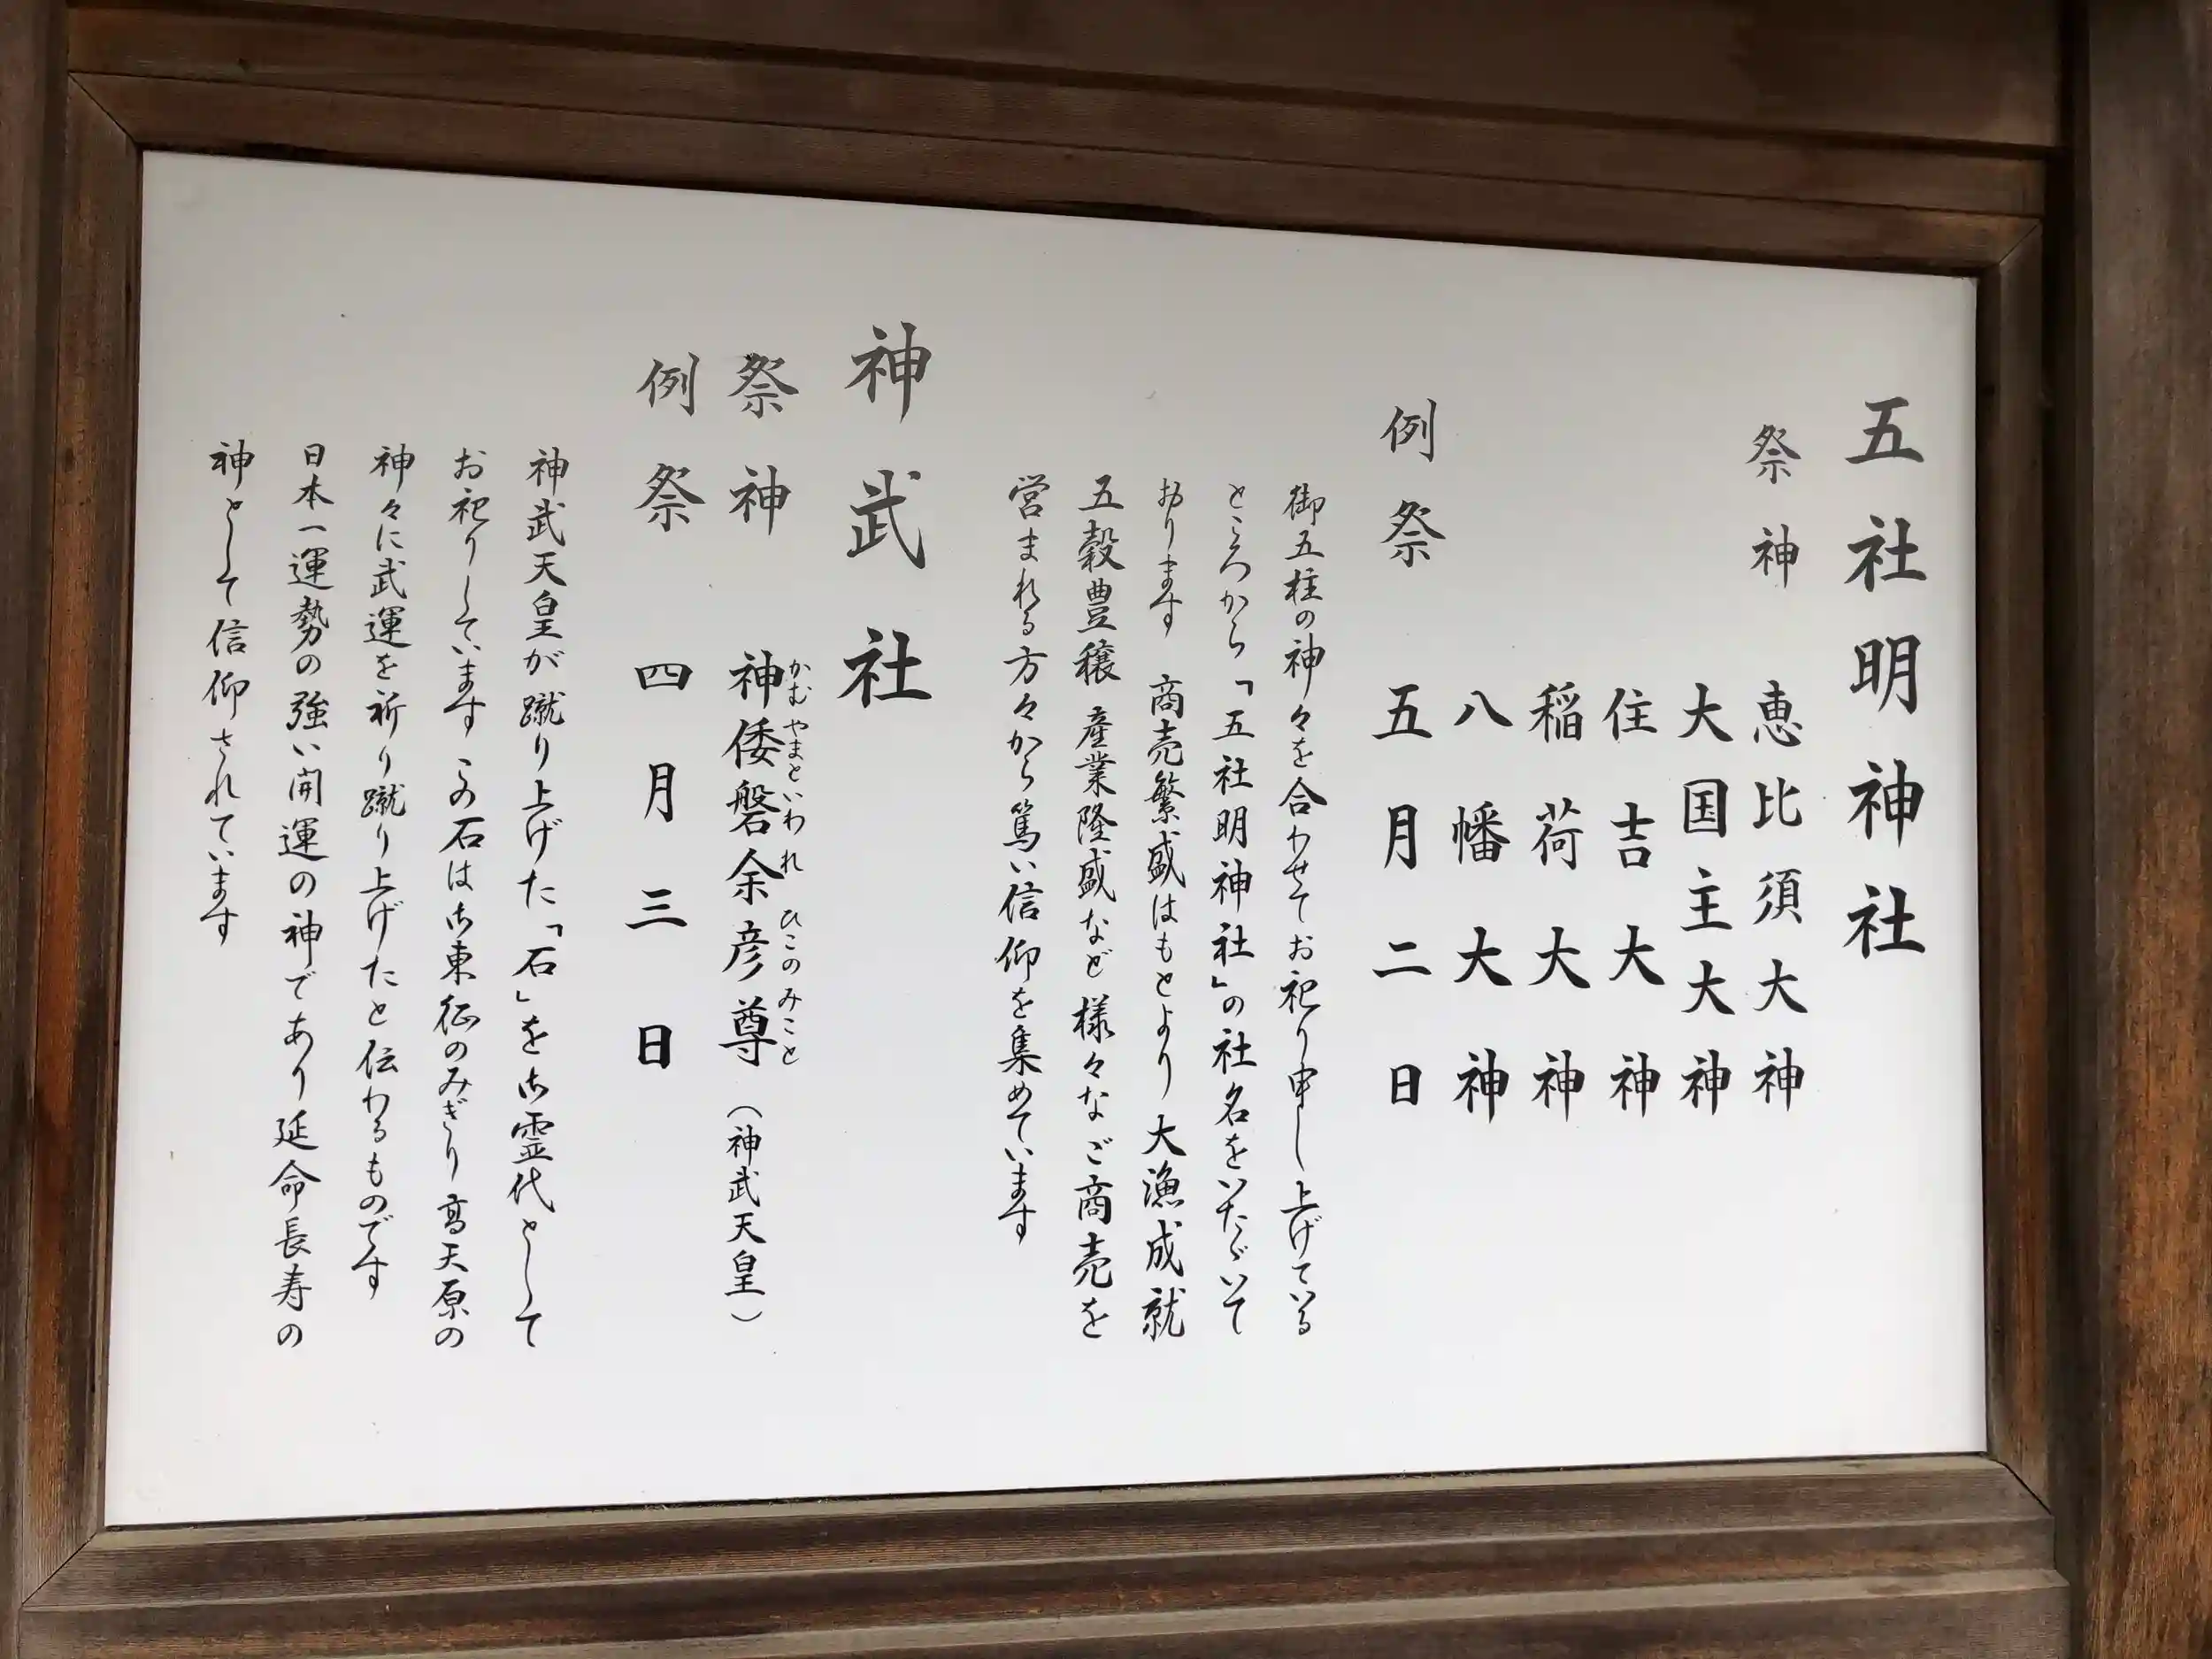 五社明神社
祭神 恵比須大神
大国主大神
住吉大神
稲荷大神
八幡大神
例祭 五月二日
御五柱の神々を合わせてお祀り申し上げている
ところから「五社明神社」の社名をいたゞいて
おります 商売繁盛はもとより大漁成就
五穀豊穣 産業隆盛など様々なご商売を
営まれる方々から篤い信仰を集めています
神武社
祭神 神倭磐余彦尊(神武天皇)
かむやまといわれひこのみこと
例祭 四月三日
神武天皇が蹴り上げた「石」を御霊代として
お祀りしています この石は御東征のみぎり高天原の
神々に武運を祈り蹴り上げたと伝わるものです
日本一運勢の強い開運の神であり延命長寿の
神として信仰されています